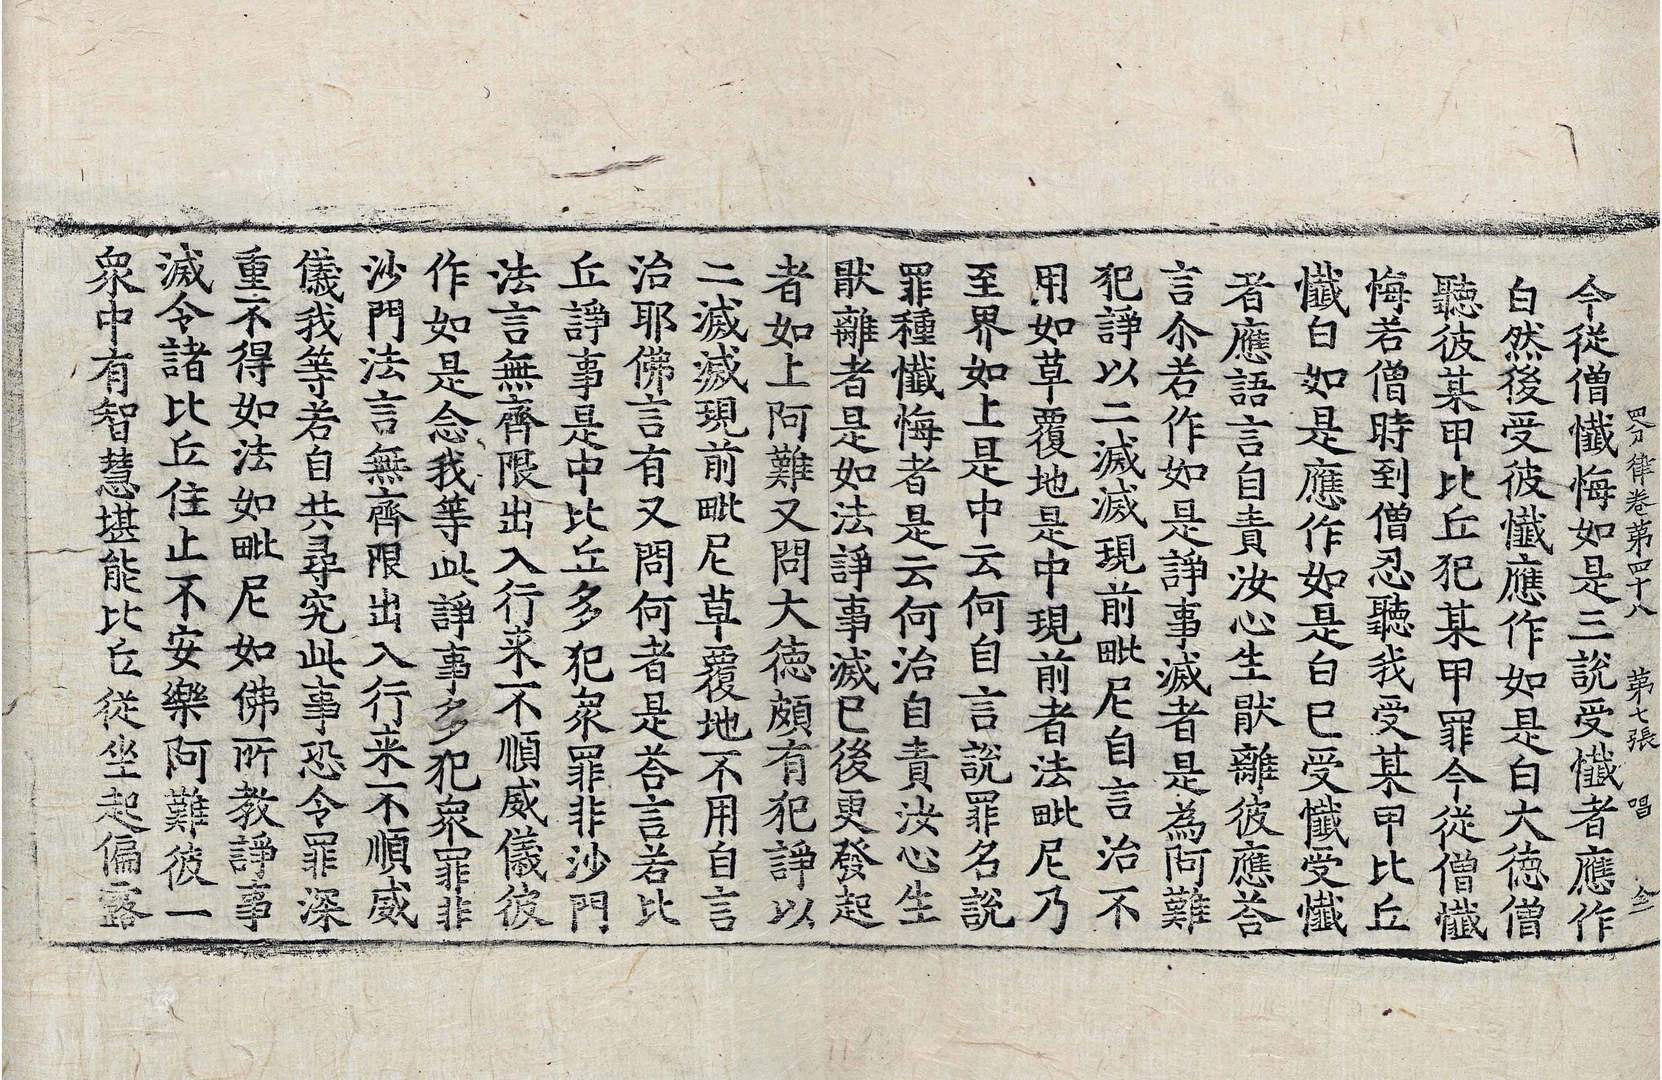 四分律卷第四十八　第七張　唱
今從僧懺悔如是三說受懺者應作
白然後受彼懺應作如是白大徳僧
聽彼某甲比丘犯某甲罪今從僧懺
悔若僧時到僧忍聽我受某甲比丘
懺白如是應作如是白已受懺受懺
者應語言自責汝心生猒離彼應荅
言尒若作如是諍事滅者是為阿難
犯諍以二滅滅現前毗尼自言治不
用如草覆地是中現前者法毗尼乃
至界如上是中云何自言說罪名說
罪種懺悔者是云何治自責汝心生
猒離者是如法諍事滅已後更發起
者如上阿難又問大徳頗有犯諍以
二滅滅現前毗尼草覆地不用自言
治耶佛言有又問何者是荅言若比
丘諍事是中比丘多犯衆罪非沙門
法言無齊限出入行来不順威儀彼
作如是念我等此諍事多犯衆罪非
沙門法言無齊限出入行来不順威
儀我等若自共尋究此事恐令罪深
重不得如法如毗尼如佛所教諍事
滅令諸比丘住止不安樂阿難彼一
衆中有智慧堪能比丘從坐起偏露